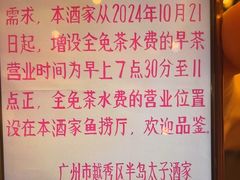 需求，本酒家从2024年10月21
日起，增设全免茶水费的早茶
营业时间为早上7点30分至11
点正，全免茶水费的营业位置
设在本酒家鱼捞厅，欢迎品鉴。
广州市越秀区半岛太子酒家